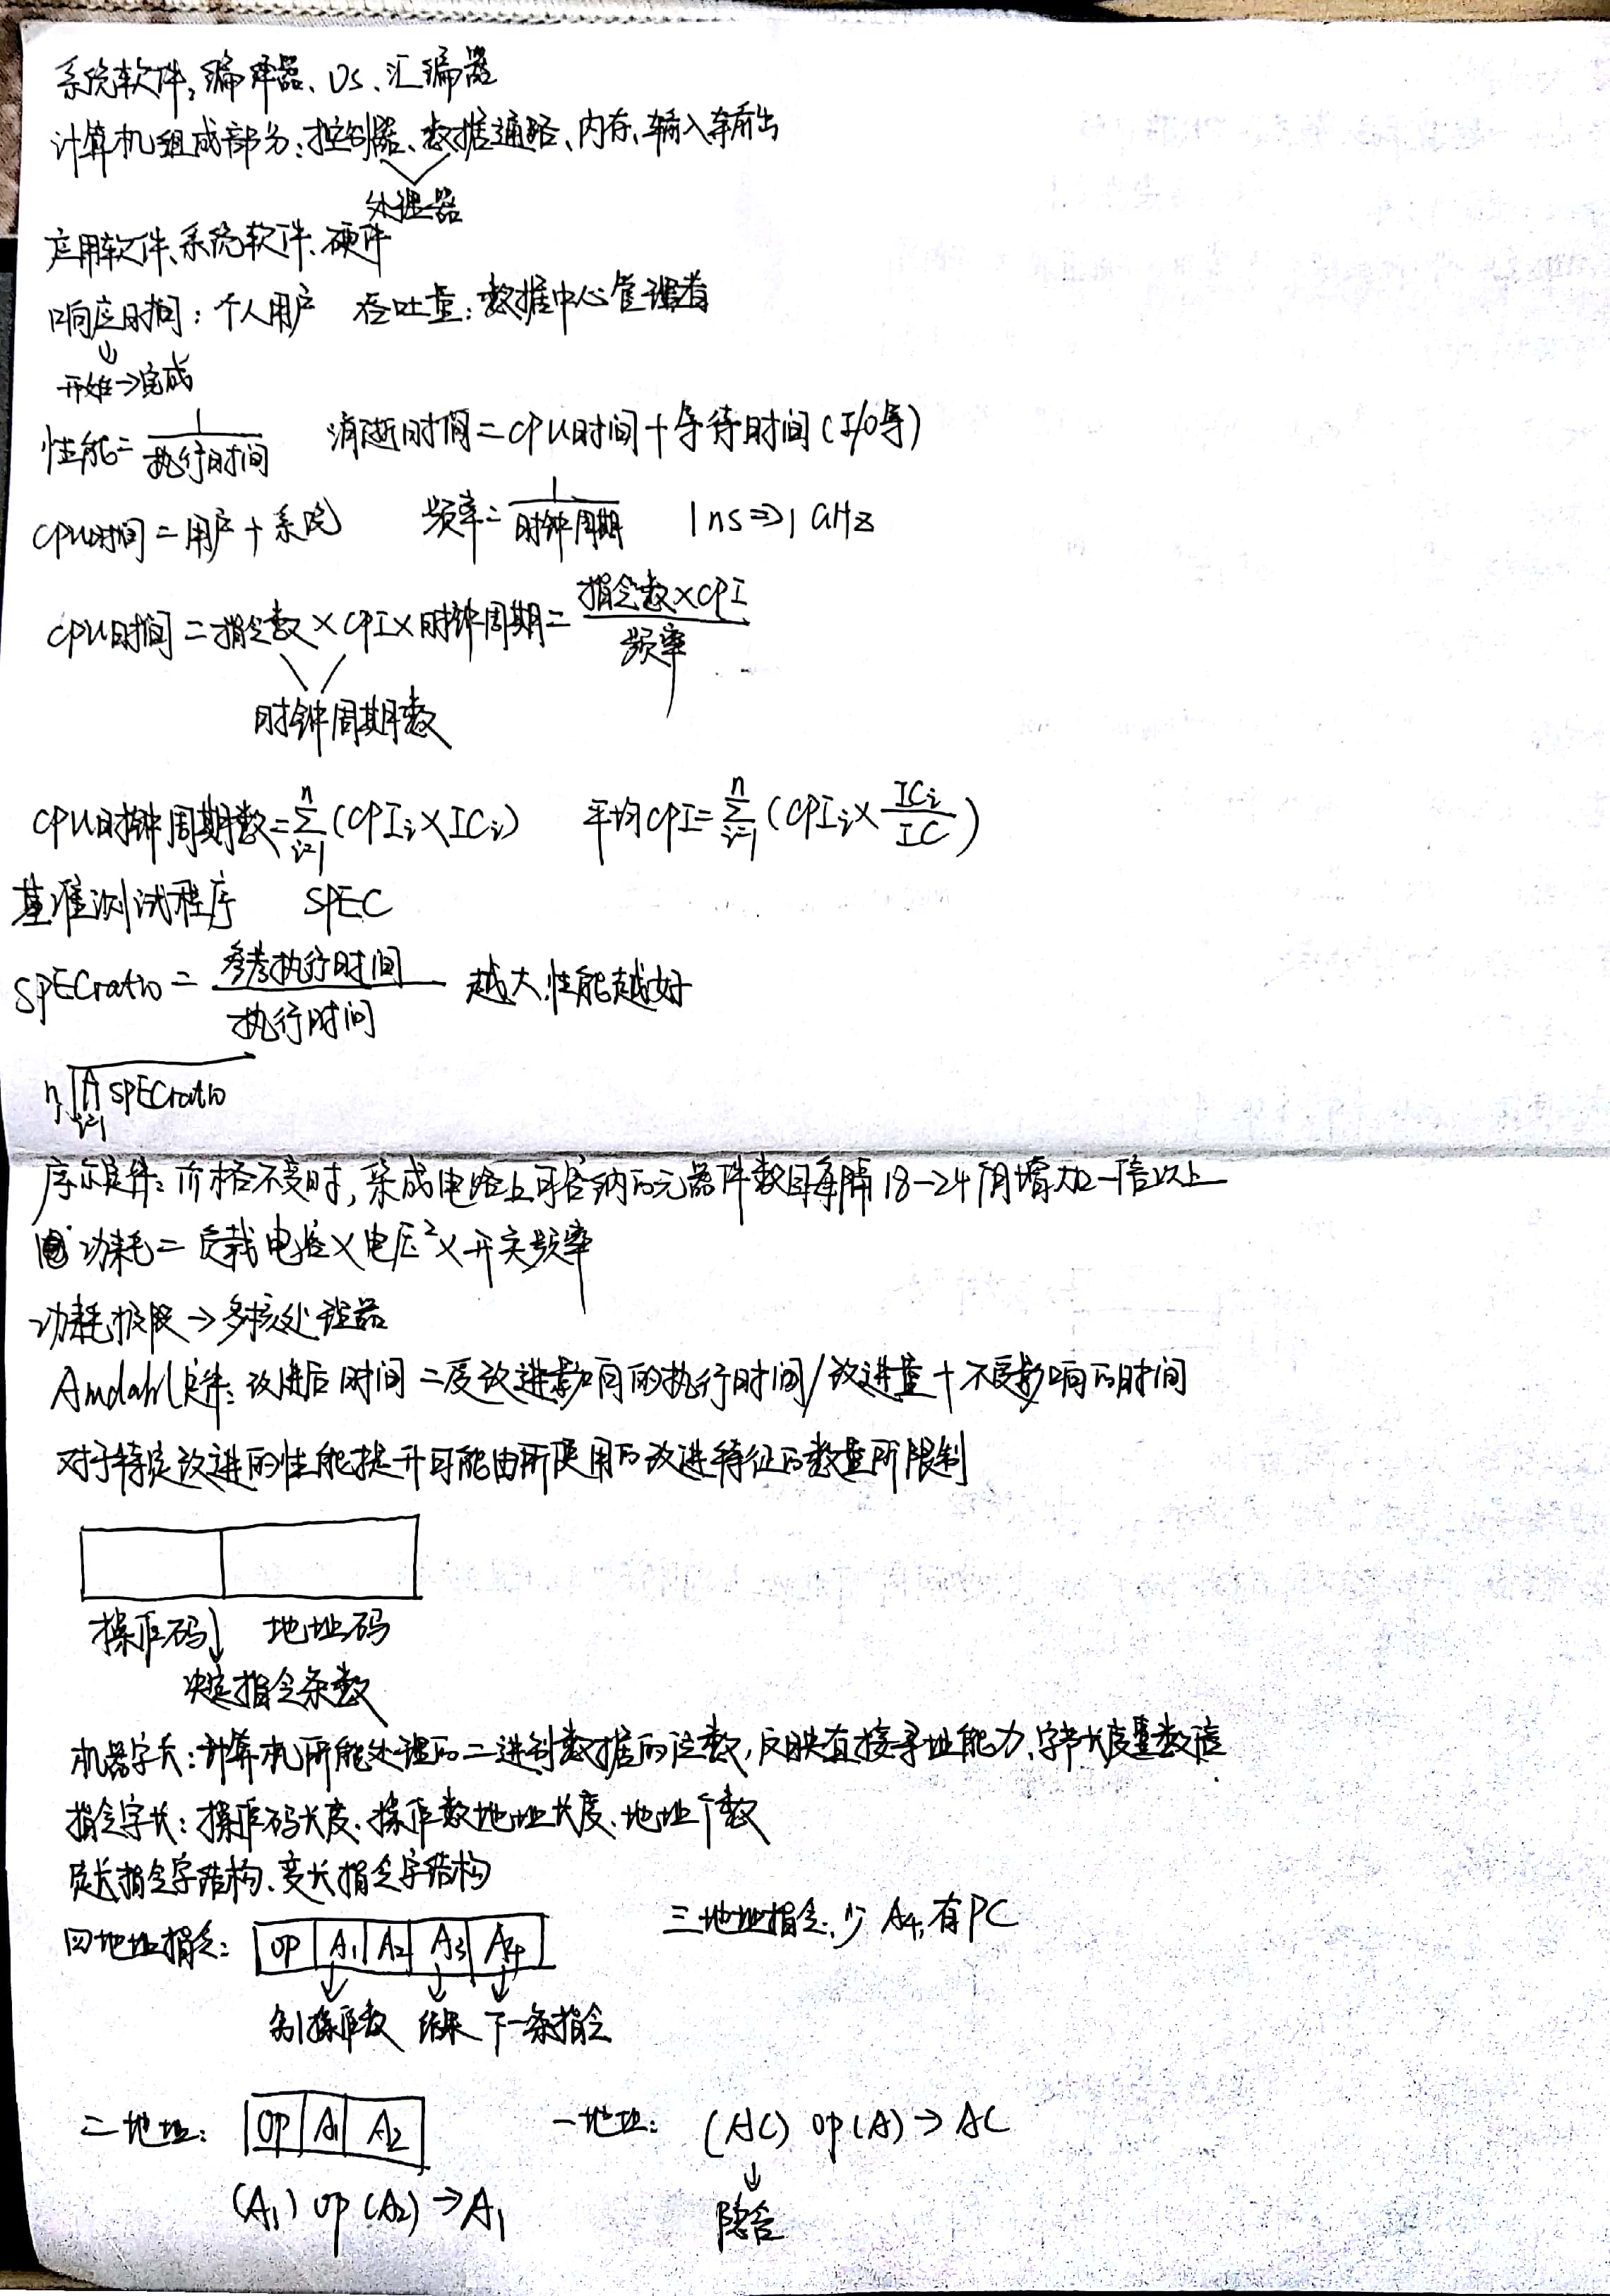 系统软件：编译器、OS、汇编器
计算机组成部分：控制器、数据通路、内存、输入输出
处理器
应用软件、系统软件、硬件
响应时间：个人用户 吞吐量：数据中心管理者
↓
开始→完成
性能=1/执行时间 消逝时间=CPU时间+等待时间(I/O等)
CPU时间=用户+系统 频率=1/时钟周期 1ns⇒1GHz
CPU时间=指令数×CPI×时钟周期=指令数×CPI/频率
时钟周期数
CPU时钟周期数=∑ⁿᵢ₌₁(CPIᵢ×ICᵢ) 平均CPI=∑ⁿᵢ₌₁(CPIᵢ×ICᵢ/IC)
基准测试程序 SPEC
SPECratio=参考执行时间/执行时间 越大，性能越好
ⁿ√∏ⁿᵢ₌₁SPECratio
摩尔定律：价格不变时，集成电路上可容纳的元器件数目每隔18-24月增加一倍以上
功耗=负载电容×电压²×开关频率
功耗极限→多核处理器
Amdahl定律：改进后时间=受改进影响的执行时间/改进量+不受影响的时间
对于特定改进的性能提升可能由所使用的改进特征的数量所限制
操作码 地址码
↓
决定指令条数
机器字长：计算机所能处理的二进制数据的位数，反映直接寻址能力，字节长度整数倍
指令字长：操作码长度、操作数地址长度、地址个数
定长指令字结构、变长指令字结构
四地址指令： OP A₁ A₂ A₃ A₄ 三地址指令：少A₄，有PC
↓ ↓ ↓
操作数 结果 下一条指令
二地址： OP A₁ A₂ 一地址： (AC) OP (A)→AC
(A₁) OP (A₂)→A₁ ↓
隐含